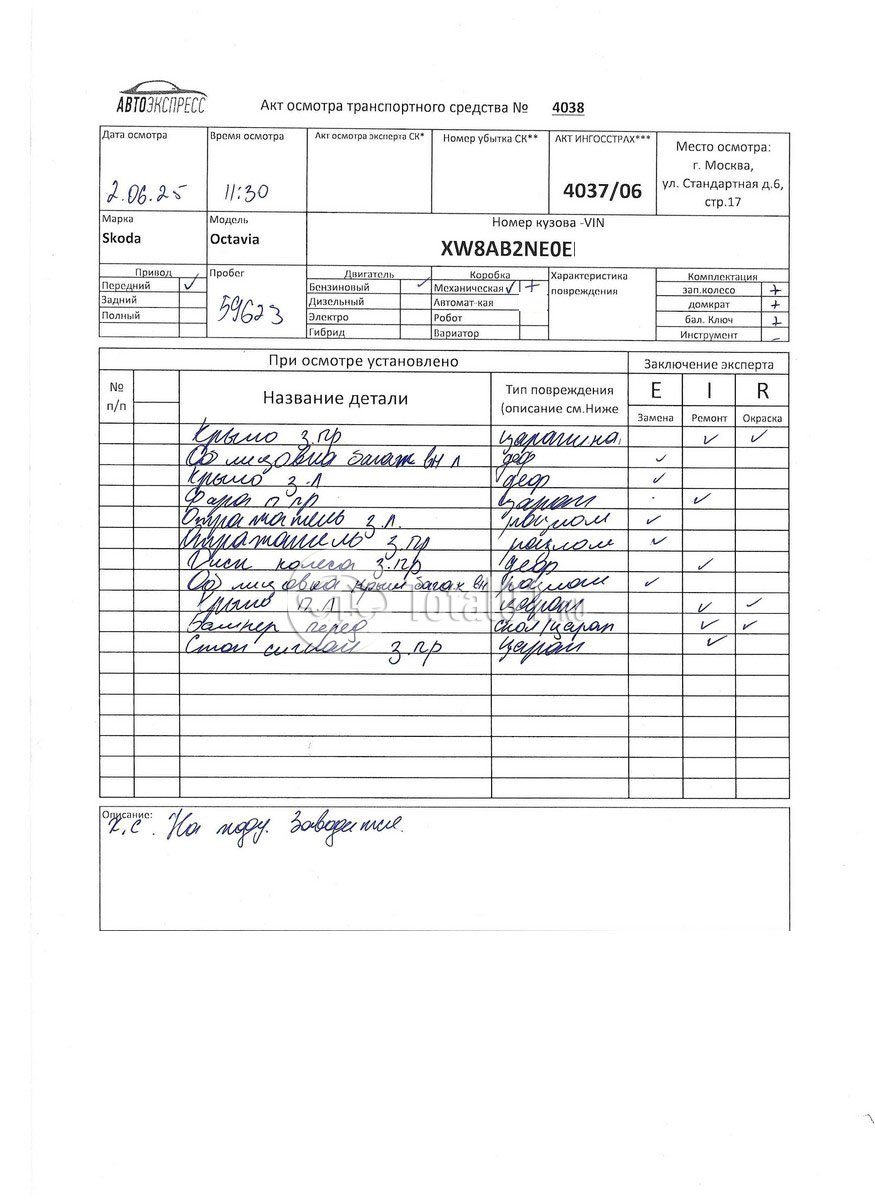 АВТОЭКСПРЕСС
Акт осмотра транспортного средства № 4038
Дата осмотра Время осмотра Акт осмотра эксперта СК* Номер убытка СК** АКТ ИНГОССТРАХ*** Место осмотра:
г. Москва,
ул. Стандартная д.6,
стр.17
2.06.25 11:30 4037/06
Марка Модель Номер кузова -VIN
Skoda Octavia XW8AB2NE0E
Привод Пробег Двигатель Коробка Характеристика повреждения Комплектация
Передний ✓ Бензиновый ✓ Механическая ✓ + зап.колесо +
Задний Дизельный Автомат-кая домкрат +
Полный 59623 Электро Робот бал. Ключ +
Гибрид Вариатор Инструмент -
При осмотре установлено Заключение эксперта
№ п/п Название детали Тип повреждения (описание см.Ниже E I R
Замена Ремонт Окраска
Крыло з.пр царапина ✓ ✓
Облицовка багаж вн л деф ✓
Крыло з.л деф ✓
Фара п пр царап ✓
Отражатель з.л. разлом ✓
Отражатель з.пр разлом ✓
Диск колеса з.пр деф ✓
Облицовка крыш багаж вн разлом ✓
Крыло п.л царап ✓ ✓
Бампер перед скол/царап ✓ ✓
Стоп сигнал з.пр царап ✓
Total01.ru
Описание:
Х,С. На ходу. Заводится.